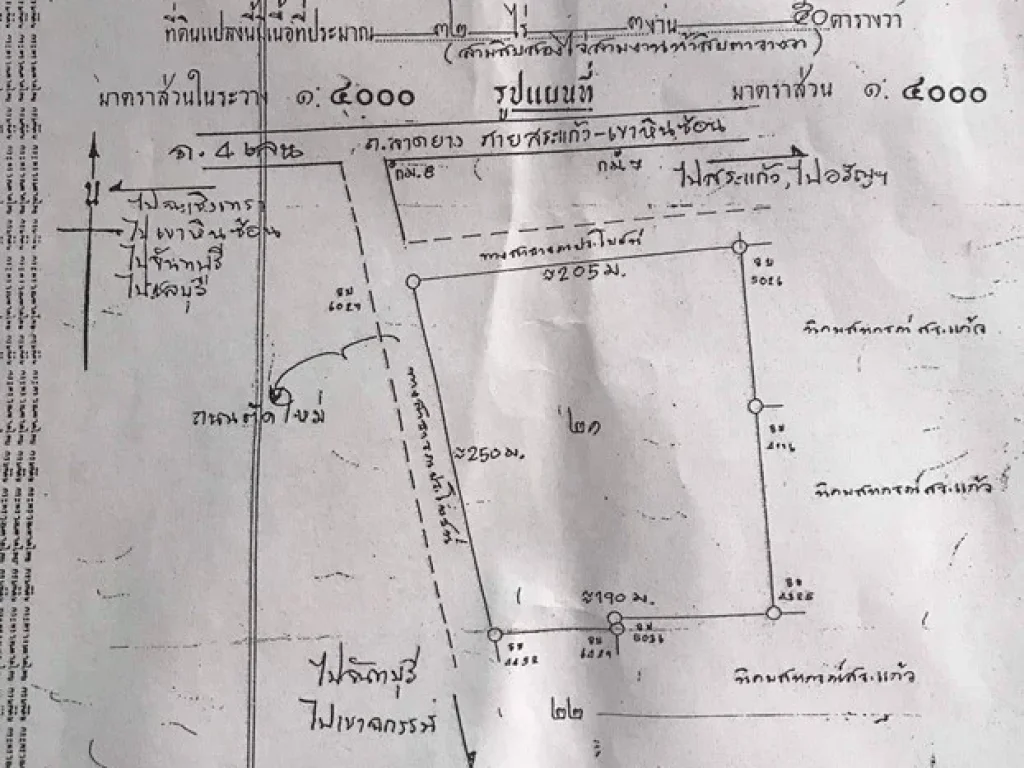 ที่ดินแปลงนี้มีเนื้อที่ประมาณ ๓๒ ไร่ ๓ งาน ๕๐ ตารางวา
(สามสิบสองไร่สามงานห้าสิบตารางวา)
มาตราส่วนในระวาง ๑:๕๐๐๐ รูปแผนที่ มาตราส่วน ๑:๕๐๐๐
ถ. 4 เลน ถ.ลาดยาง สายสระแก้ว-เขาหินซ้อน
กม.8 กม.7
น ไปสระแก้ว, ไปอรัญฯ
ไปฉะเชิงเทรา
ไปเขาหินซ้อน
ไปจันทบุรี
ไปชลบุรี
ทางสาธารณประโยชน์
≈205 ม.
นิคมสหกรณ์สระแก้ว
ถนนตัดใหม่
๒๑
ทางสาธารณประโยชน์
≈250 ม.
นิคมสหกรณ์สระแก้ว
≈190 ม.
ไปจันทบุรี
นิคมสหกรณ์สระแก้ว
ไปเขาฉกรรจ์
๒๒